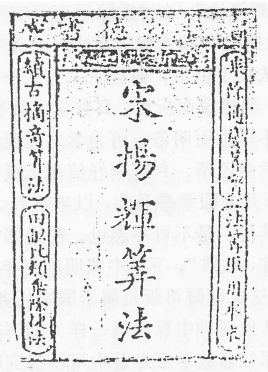 德書
乘除通變筭寶
法筭取用本末
宋楊輝筭法
續古摘奇筭法
田畝比類乘除捷法